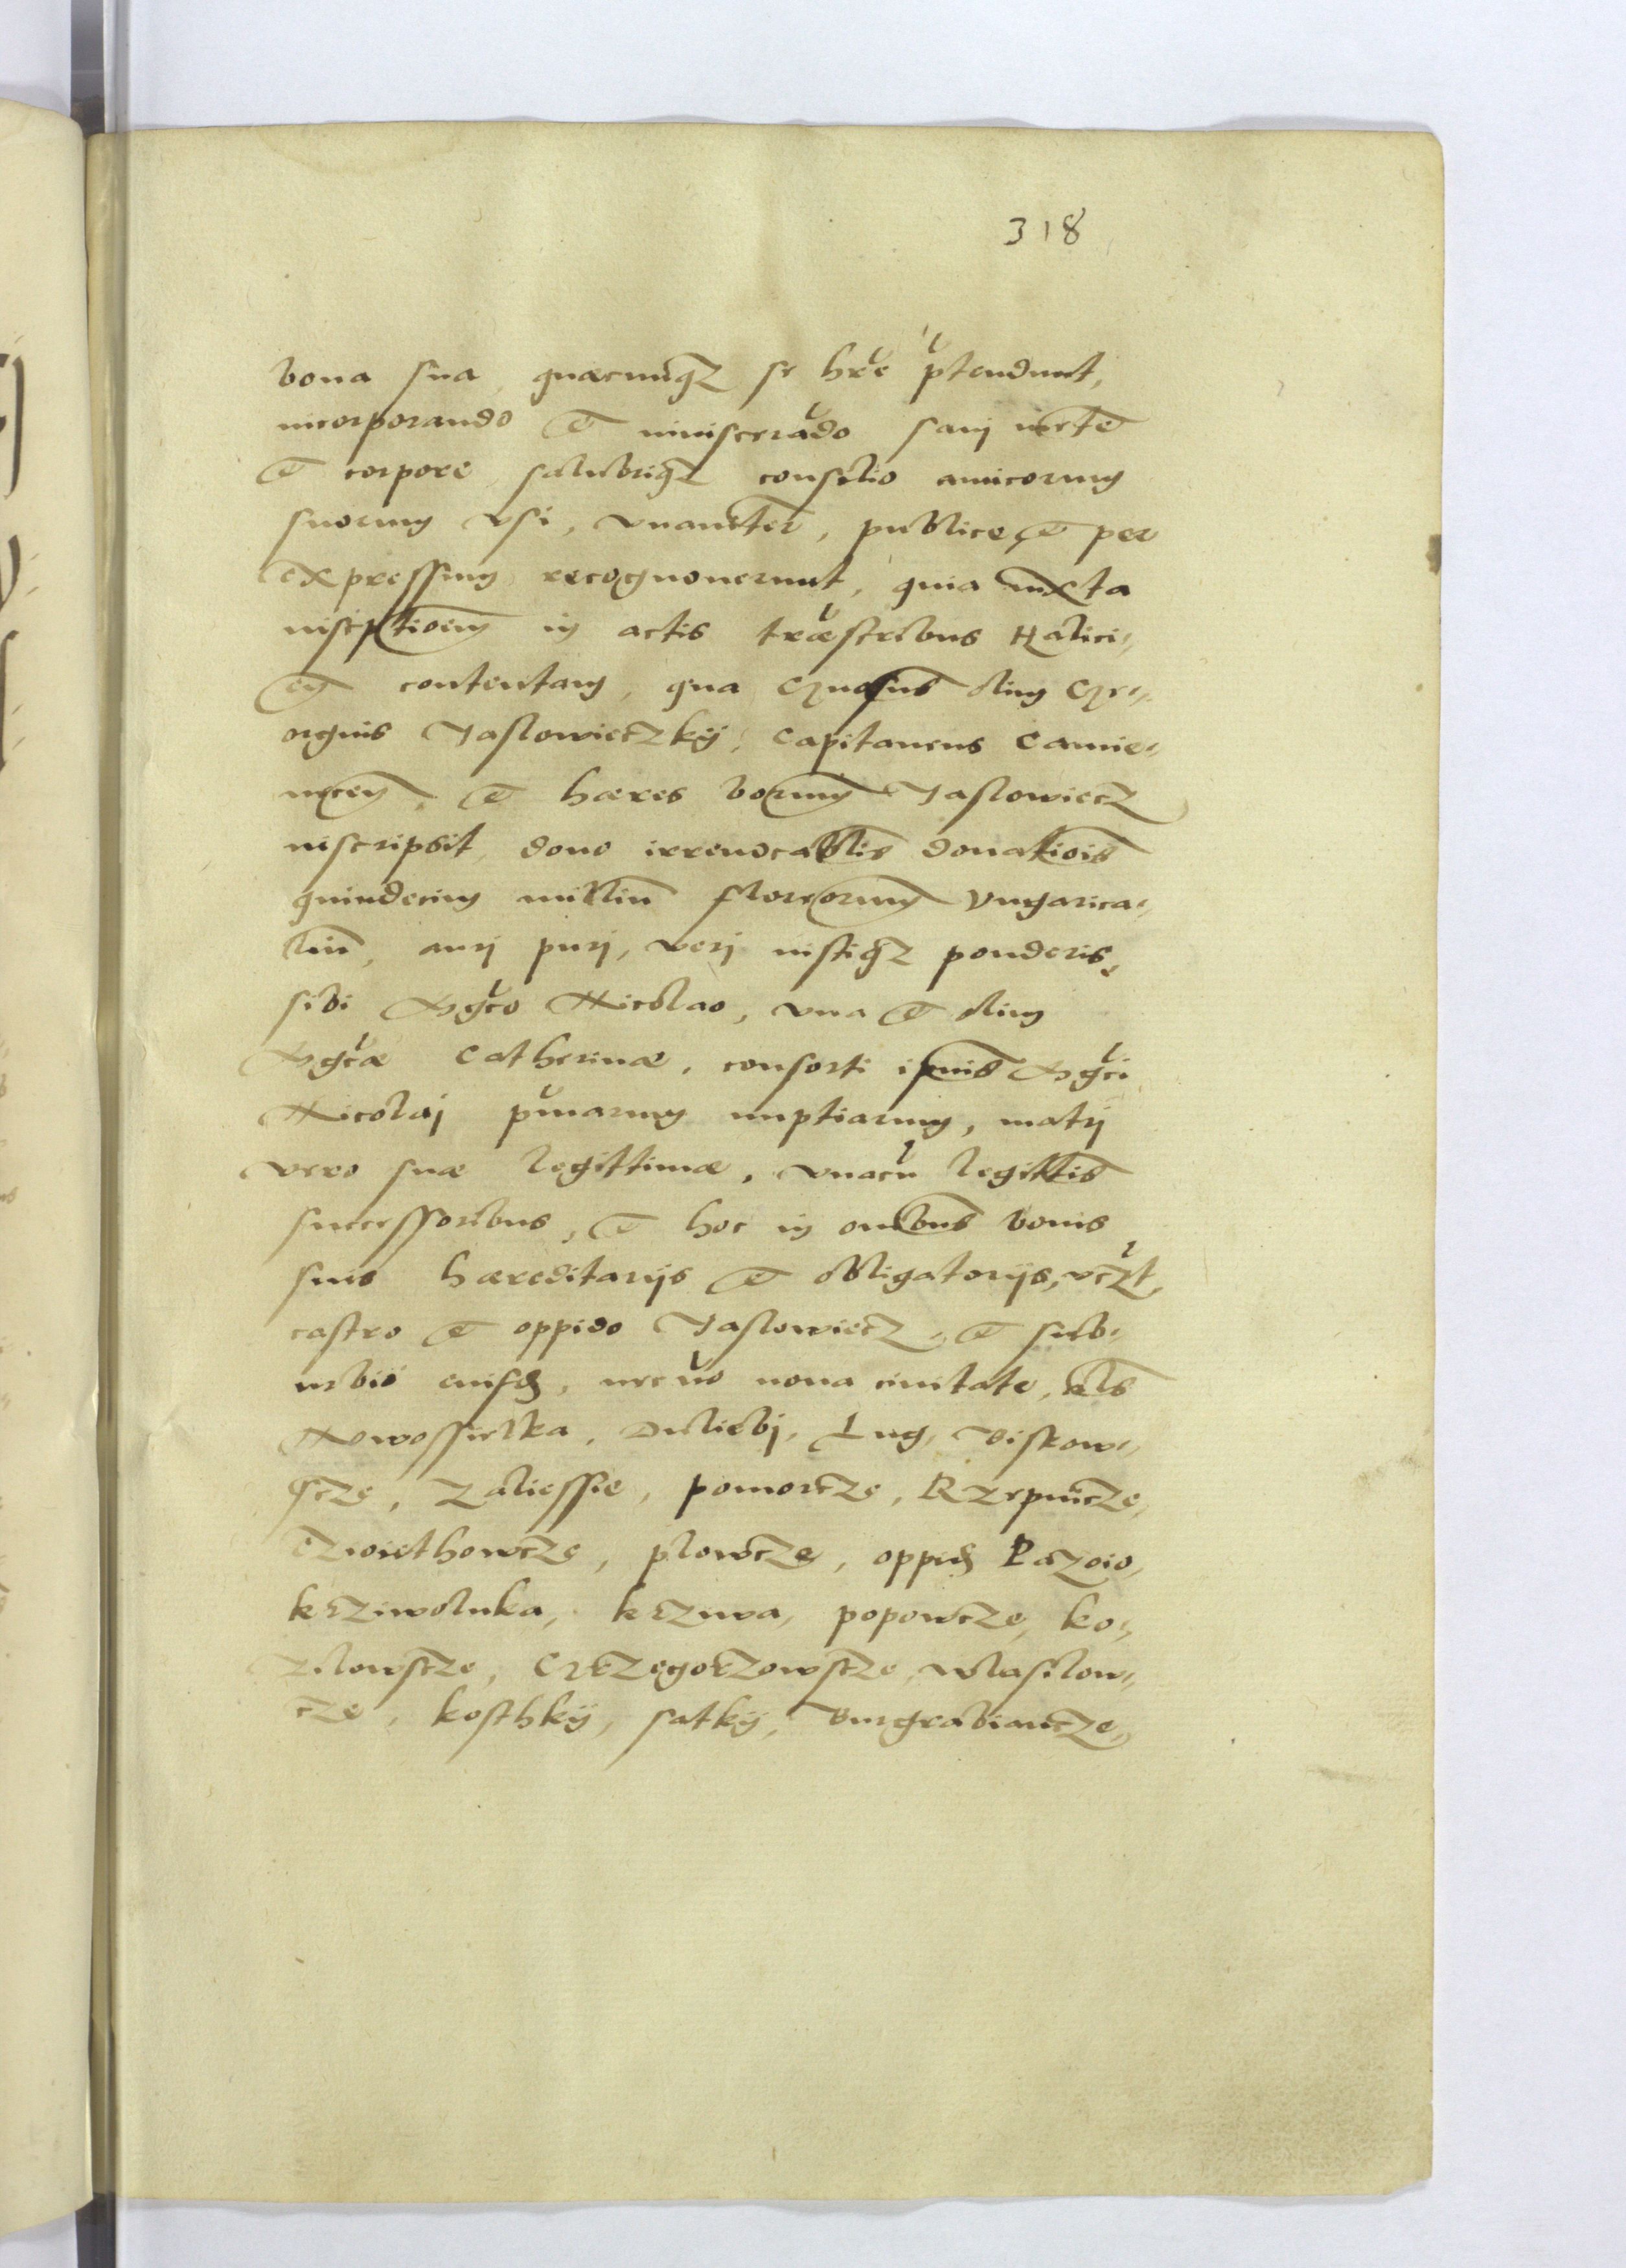 318
bona sua, quaecunqz se hre ptendunt,
incorporando et inviscerado sani mete
et corpore, salubriqz consilio amicorum
suorum usi, unamiter, publice, et per
expressum recognoverunt, quia iuxta
inscptioem in actis træstribus Halici„
en contentam, qua Gnosus olim Ge„
orgius Jaslowieczky, Capitaneus Camie„
nccen, et hæres borum Jaslowiecz
inscripsit, dono irrevocablis donatiois
quindecim milliu florenorum Vngarica„
liu, auri puri, veri iustiqz ponderis,
sibi Mgco Nicolao, una et olim
Mgcæ Catherinæ, consorti ipsius Mgci
Nicolai pmarum nuptiarum, matri
vero suæ legittimæ, unacu legittis
successoribus, et hoc in omibus bonis
suis hæreditarijs et obligatorijs, vczt,
castro et oppido Jaslowiecz, et sub„
urbio eiusd, nec no nova civitate, vlis
Nowossielka, Duliebi, Lug, Biskow„
scze, Zaliessie, pomorcze, Rzepincze,
Czwiethowcze, plowcze, oppid
krziwoluka, krzuva, popowcze, ko„
zilowscze, Grzegorzowscze, Wlasilow„
cze, kosthky, satky, Burgrabiancze,